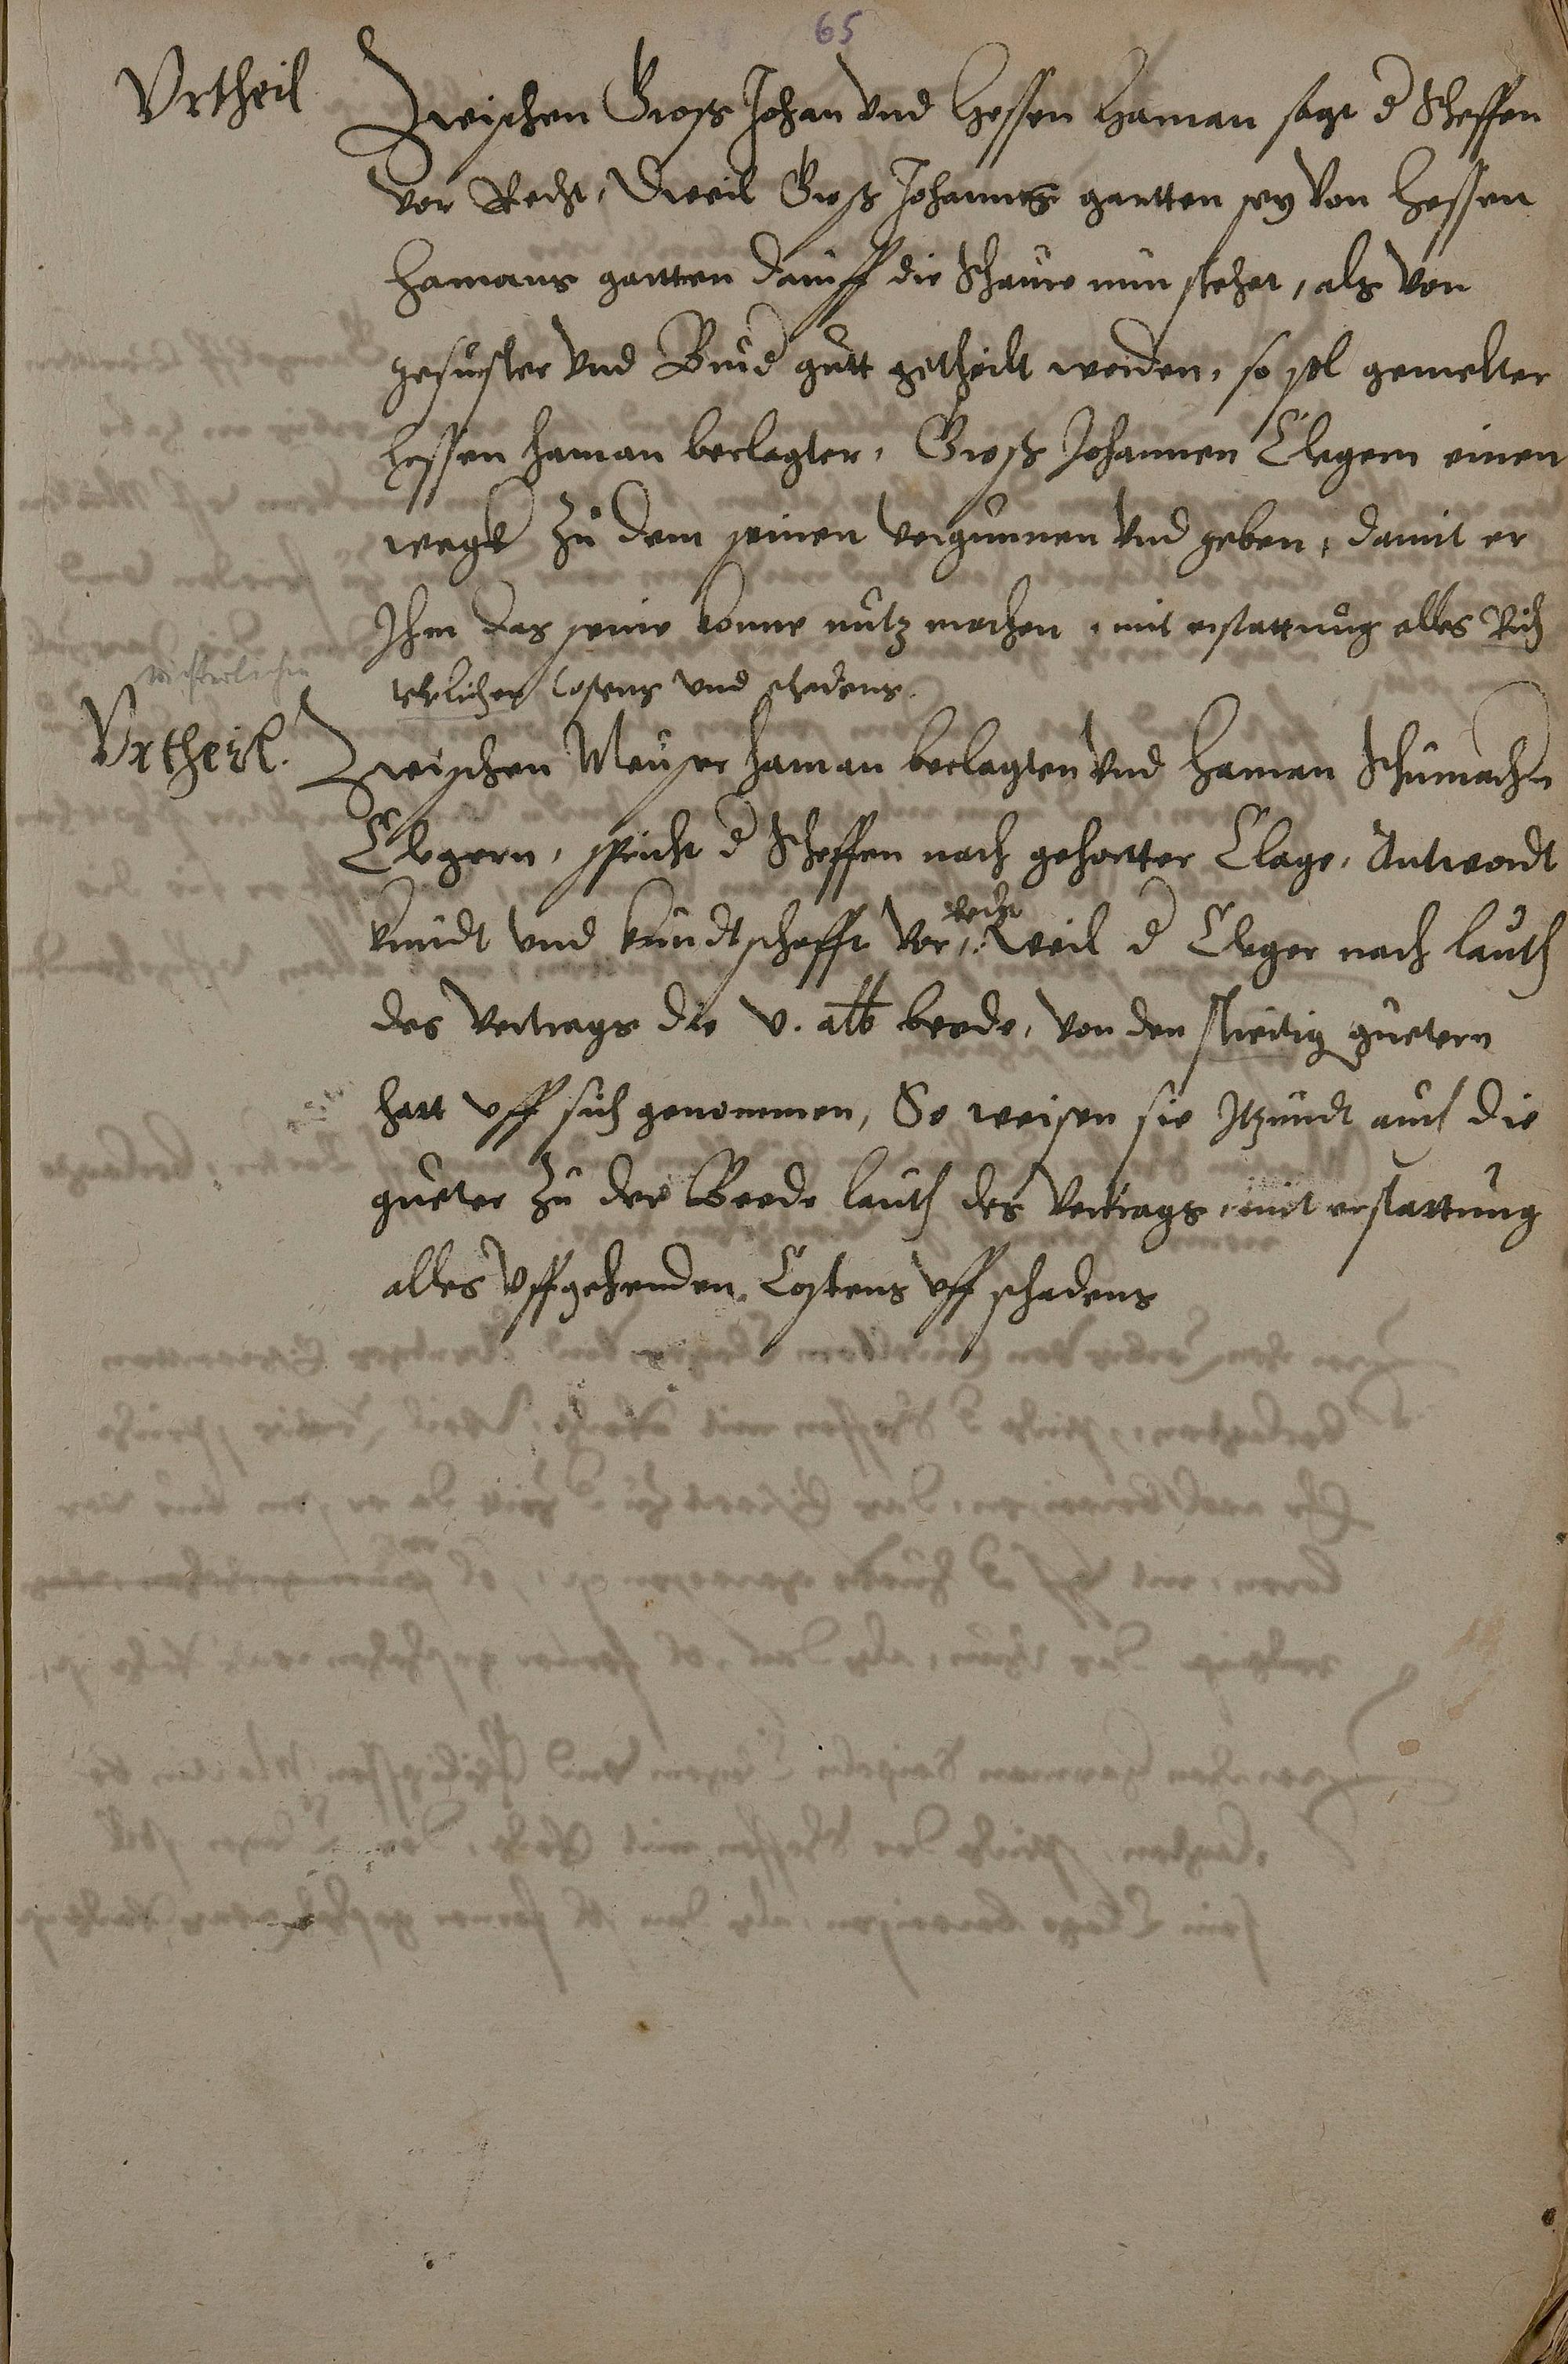 65
Vrtheil
Zwischen Gross Johan vnd Hessen Haman sagt d Scheffen
vor Recht, Weil Gross Johannes gartten sey von Hessen
Hamans gartten druff die Schaure nun stehet, als von
gesuster vnd Brud gutt getheilt worden, so sol gemelter
Hessen Haman beclagter, Gross Johannen Clegern einen
wegk zu dem seinen vergunnen vnd geben, damit er
Ihm das seine konne nutz machen, mit erstattung alles Rich
terlichen costens vnd schadens.
Vrtheil.
Zwischen Meuser Haman beclagten vnd Haman Schumachn
Clegern, spricht d Scheffen nach gehortter Clage, Antwordt
kundt vnd kundtschafft vor, Recht Weil d Cleger nach lauth
des Vertrags die v. alb beede, von den streitig guetern
hatt vff sich genommen, So weisen sie Itzundt auch die
gueter zu der Beede lauth des Vertrags, mit erstattung
alles vffgehenden Costens vff schadens